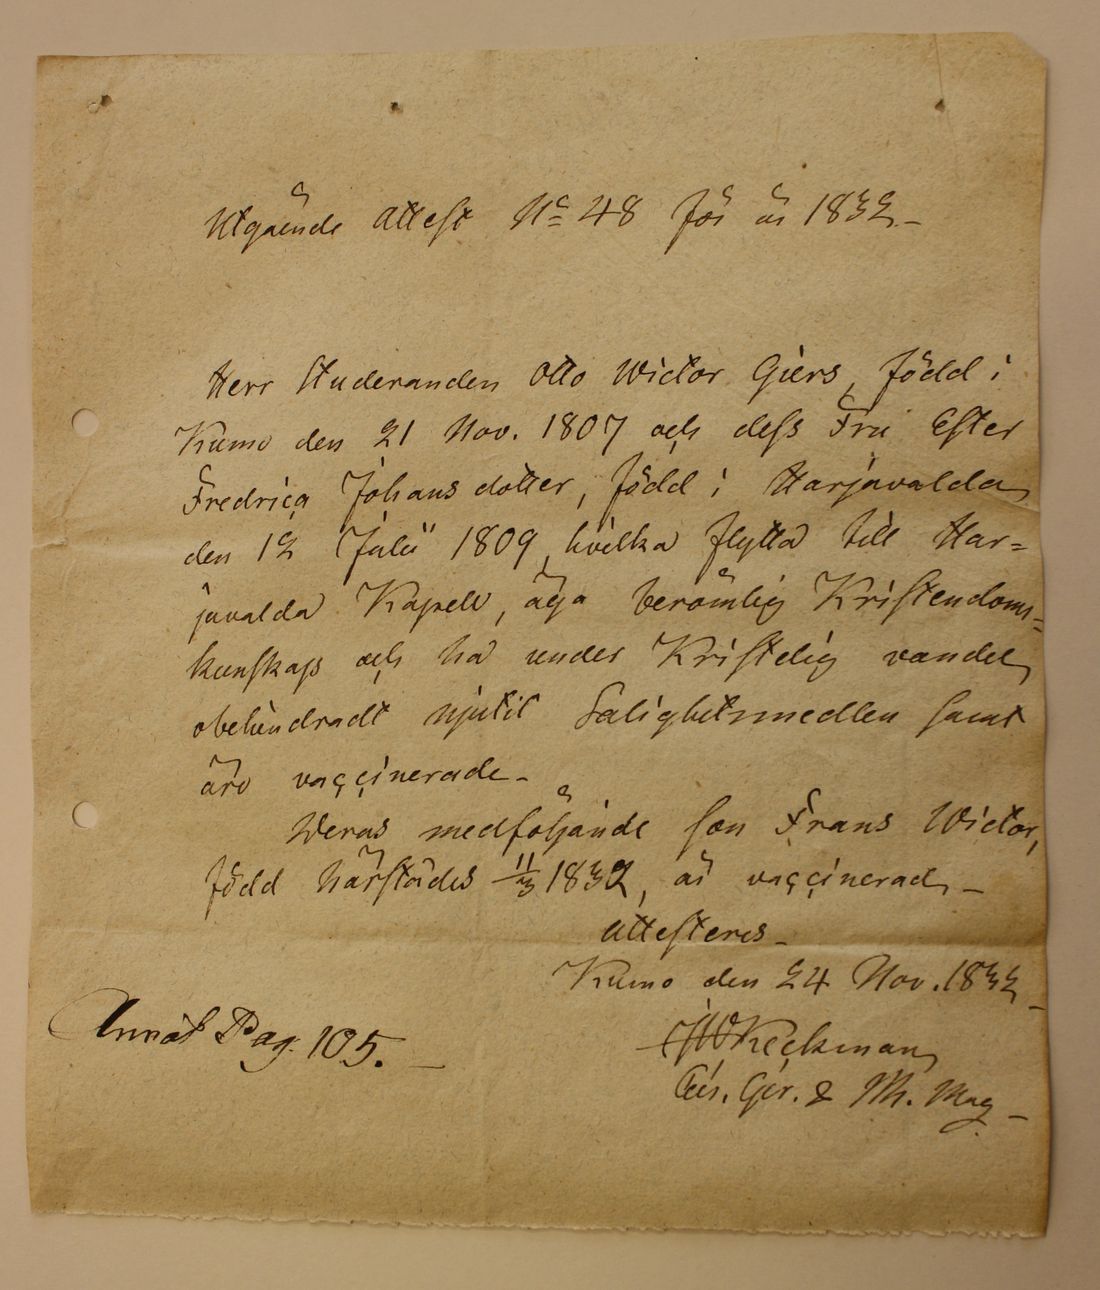 Utgående attest No 48 för år 1832 –
Herr Studeranden Otto Wictor Giers, född i
Kumo den 21 Nov. 1807 och dess Fru Ester
Fredrica Johansdotter, född i Harjavalda
den 12 Julii 1809, hvilka flytta till Har=
javalda Kapell, äga berömlig Kristendoms=
kunskap och ha under Kristelig vandel
obehindradt njutit Salighetsmedlen samt
äro vaccinerade –
Deras medföljande son Frans Wictor,
född härstädes 11/3 1832, är vaccinerad –
attesteras –
Kumo den 24 Nov. 1832 –
Keckman
Pag. 105. –
& Mag –